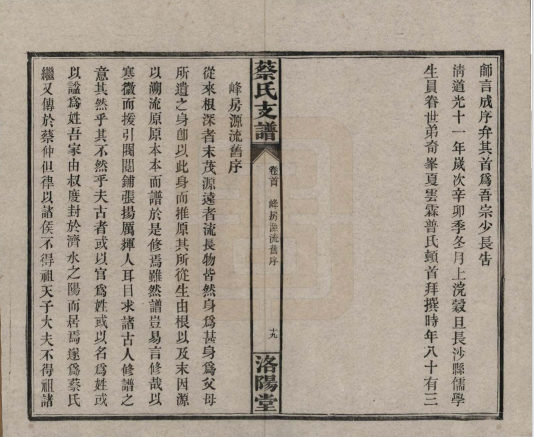 師言成序弁其首爲吾宗少長告
清道光十一年歲次辛卯季冬月上浣穀旦長沙縣儒學
生員眷世弟奇峯夏雲霖普氏頓首拜撰時年八十有三
蔡氏支譜
卷首
峰房源流舊序
十九
洛陽堂
峰房源流舊序
從來根深者末茂源遠者流長物皆然身爲甚身爲父母
所遺之身卽以此身而推原其所從生由根以及末因源
以溯流原原本本而譜於是修焉雖然譜豈易言修哉以
寒微而援引閥閱鋪張揚厲揮人耳目求諸古人修譜之
意其然乎其不然乎夫古者或以官爲姓或以名爲姓或
以諡爲姓吾家由叔度封於濟水之陽而居焉遂爲蔡氏
繼又傳於蔡仲但律以諸侯不得祖天子大夫不得祖諸